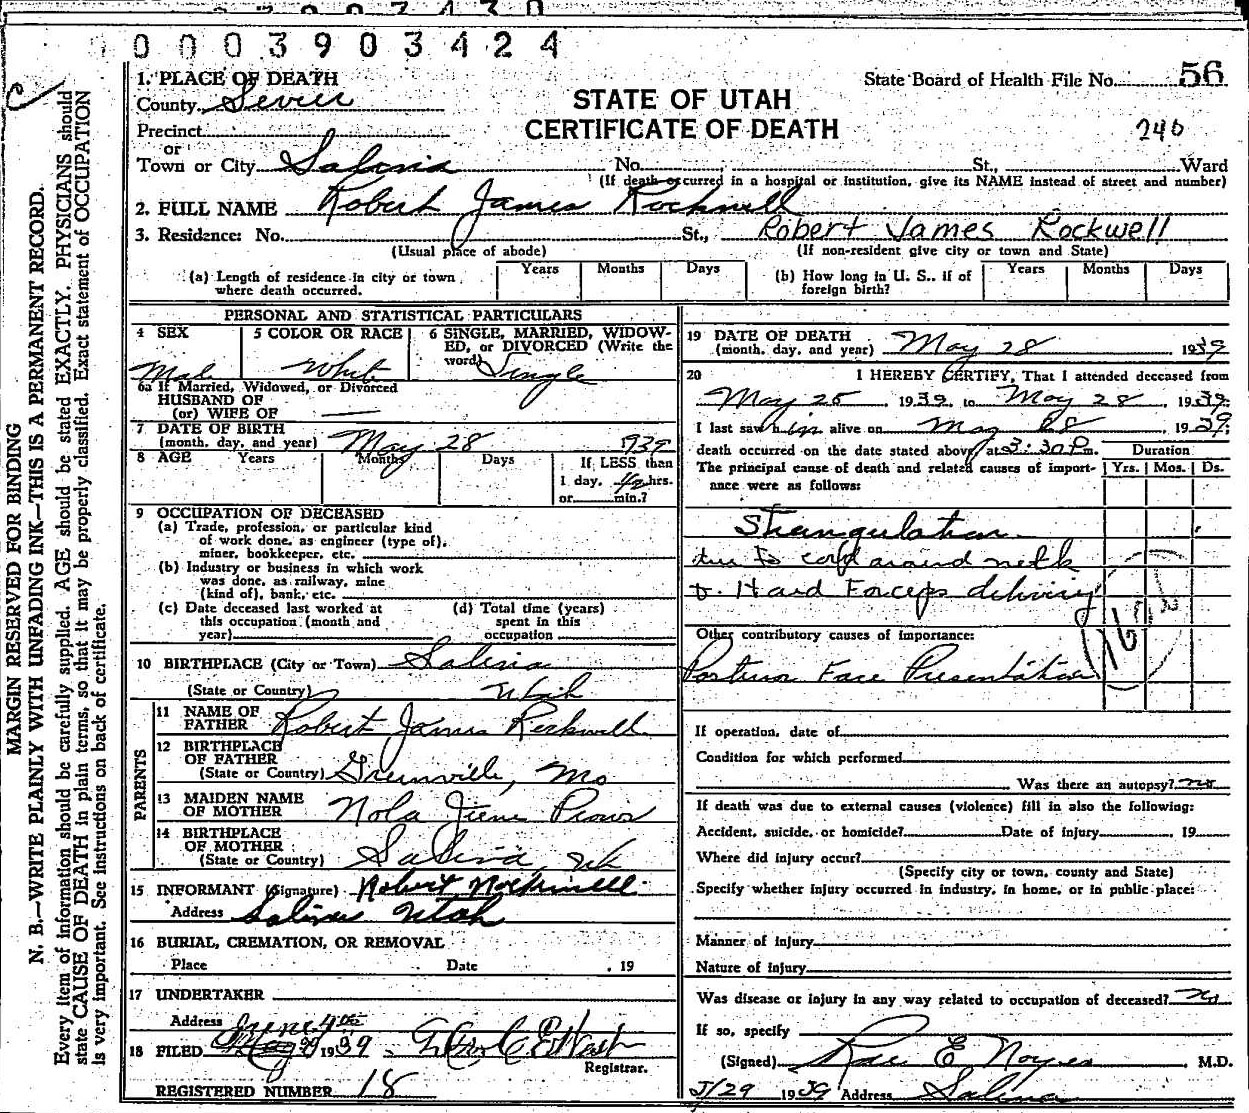 0003903424
1. PLACE OF DEATH
State Board of Health File No. 56
County Sevier
STATE OF UTAH
CERTIFICATE OF DEATH
240
Precinct
or
Town or City Salina No. St., Ward
(If death occurred in a hospital or institution, give its NAME instead of street and number)
2. FULL NAME Robert James Rockwell
3. Residence: No. St., Robert James Rockwell
(Usual place of abode) (If non-resident give city or town and State)
(a) Length of residence in city or town where death occurred. Years Months Days
(b) How long in U. S., if of foreign birth? Years Months Days
PERSONAL AND STATISTICAL PARTICULARS
4 SEX
Male
5 COLOR OR RACE
White
6 SINGLE, MARRIED, WIDOW-
ED, or DIVORCED (Write the
word) Single
6a If Married, Widowed, or Divorced
HUSBAND OF
(or) WIFE OF —
7 DATE OF BIRTH
(month, day, and year) May 28 1939
8 AGE Years Months Days
If LESS than
1 day, 1/2 hrs.
or min.?
9 OCCUPATION OF DECEASED
(a) Trade, profession, or particular kind
of work done, as engineer (type of),
miner, bookkeeper, etc.
(b) Industry or business in which work
was done, as railway, mine
(kind of), bank, etc.
(c) Date deceased last worked at
this occupation (month and
year)
(d) Total time (years)
spent in this
occupation
10 BIRTHPLACE (City or Town) Salina
(State or Country) Utah
PARENTS
11 NAME OF
FATHER Robert James Rockwell
12 BIRTHPLACE
OF FATHER
(State or Country) Greenville, Mo
13 MAIDEN NAME
OF MOTHER Nola Irene Prows
14 BIRTHPLACE
OF MOTHER
(State or Country) Salina, Ut
15 INFORMANT (Signature) Robert Rockwell
Address Salina Utah
16 BURIAL, CREMATION, OR REMOVAL
Place Date , 19
17 UNDERTAKER
Address
June 4th
18 FILED May 29 1939
Registrar.
REGISTERED NUMBER 18
19 DATE OF DEATH
(month, day, and year) May 28 1939
20 I HEREBY CERTIFY, That I attended deceased from
May 25, 1939, to May 28, 1939;
I last saw him alive on May 28, 1939;
death occurred on the date stated above, at 3:30 P. m.
Duration
The principal cause of death and related causes of import-
ance were as follows:
Yrs. Mos. Ds.
Strangulation
due to cord around neck
& Hard Forceps delivery
Other contributory causes of importance:
Posterior Face Presentation
If operation, date of
Condition for which performed
Was there an autopsy? no
If death was due to external causes (violence) fill in also the following:
Accident, suicide, or homicide? Date of injury , 19
Where did injury occur?
(Specify city or town, county and State)
Specify whether injury occurred in industry, in home, or in public place:
Manner of injury
Nature of injury
Was disease or injury in any way related to occupation of deceased? no
If so, specify
(Signed) Rae E Noyes, M.D.
5/29 1939 Address Salina
MARGIN RESERVED FOR BINDING
N. B.—WRITE PLAINLY WITH UNFADING INK—THIS IS A PERMANENT RECORD.
Every item of information should be carefully supplied. AGE should be stated EXACTLY. PHYSICIANS should
state CAUSE OF DEATH in plain terms, so that it may be properly classified. Exact statement of OCCUPATION
is very important. See instructions on back of certificate.